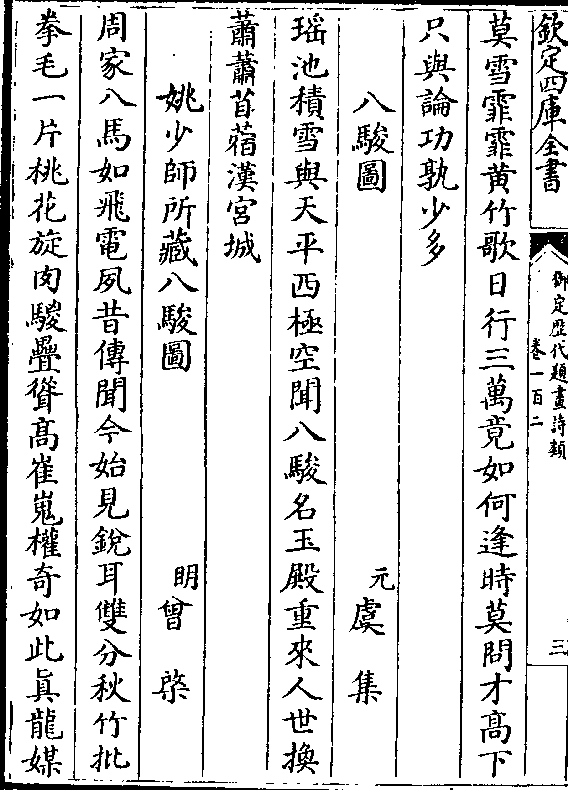 欽定四庫全書
御定歴代題畫詩類
卷一百二
三
莫雪霏霏黄竹歌日行三萬竟如何逢時莫問才高下
只與論功孰少多
八駿圖
元虞集
瑶池積雪與天平西極空聞八駿名玉殿重來人世換
蕭蕭苜蓿漢宫城
姚少師所藏八駿圖
明曾棨
周家八馬如飛電夙昔傳聞今始見銳耳雙分秋竹批
拳毛一片桃花旋肉騣疊聳高崔嵬權奇如此真龍媒